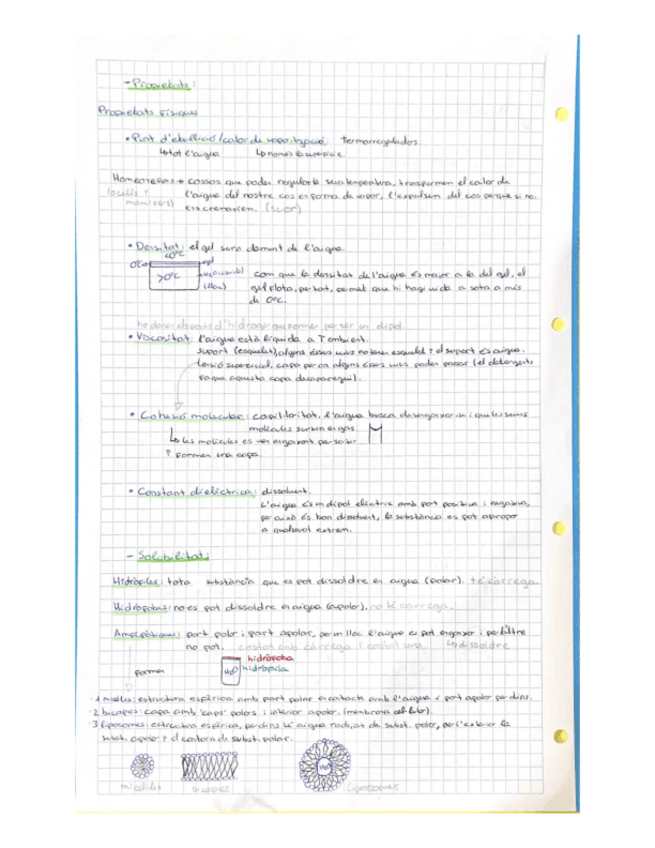 - Propietats:
Propietats físiques
• Punt d'ebullició / calor de vaporització: termorregulados.
↳ tot l'aigua ↳ només la superfície
Homeoterms → cossos que poden regular la seva temperatura, transformen el calor de
(ocells i l'aigua del nostre cos en forma de vapor, l'expulsen del cos perque si no
mamífers) ens cremariem. (suor)
• Densitat: el gel sura damunt de l'aigua.
<0ºC
0ºC gel
>0ºC H2O (líquid) com que la densitat de l'aigua és major a la del gel, el
gel flota, per tant, permet que hi hagi vida a sota a més
de 0ºC.
ponts d'hidrogen que formen per ser un dipol
• Viscositat: l'aigua està líquida a T ambient.
suport (esquelet), alguns éssers vius no tenen esquelet i el suport és aigua.
tensió superficial, capa per on alguns éssers vius poden passar (el detergents
fa que aquesta capa desaparegui).
• Cohesió molecular: capil·laritat, l'aigua busca d'enganxar-se i que les seves
molècules surtin en gas
↳ les molècules es van enganxant per sortir
i formen una capa.
• Constant dielèctrica: dissolvent.
L'aigua és un dipol elèctric amb part positiva i negativa,
per això és bon dissolvent, la substància es pot apropar
a qualsevol extrem.
- Solubilitat:
Hidròfiles: tota substància que es pot dissoldre en aigua (polar). té càrrega.
Hidròfobes: no es pot dissoldre en aigua (apolar). no té càrrega.
Amfipàtiques: part polar i part apolar, per un lloc l'aigua es pot enganxar i per l'altre
no pot. costat amb càrrega i costat sense ↳ dissoldre
hidròfoba
formen H2O hidròfila
· 1 micel·les: estructura esfèrica amb part polar en contacte amb l'aigua i part apolar per dins.
· 2 bicapes: capa amb "caps" polars i interior apolar. (membrana cel·lular).
· 3 liposomes: estructura esfèrica, per dins té aigua rodejat de subst. polar, per l'exterior la
subst. apolar i el contorn de subst. polar.
H2O
micel·les bicapes liposomes